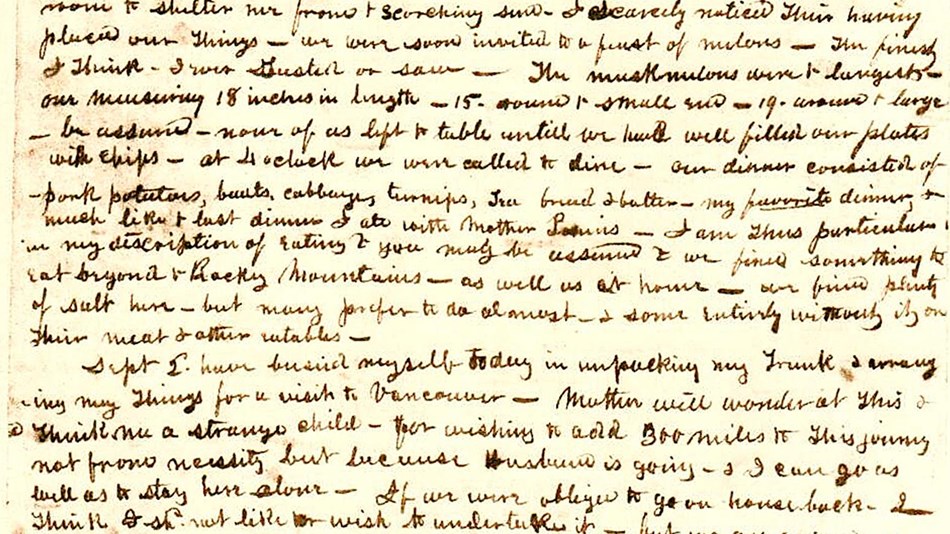 room to shelter me from t scorching sun - I scarcely noticed their having
placed our things - we were soon invited to a feast of melons - The finest
I think - I ever tasted or saw - The muskmelons were t largest -
our measuring 18 inches in length - 15 - around t small end - 19 - around t large
- be assured - none of us left t table untill we had well filled our plates
with chips - at 4 oclock we were called to dine - our dinner consisted of
pork potatoes, beets, cabbage, turnips, tea bread & butter - my favorite dinner, &
much like t last dinner I ate with Mother Loomis - I am thus particular
in my description of eating t you may be assured t we find something to
eat beyond t Rocky Mountains - as well as at home - we find plenty
of salt here - but many prefer to do almost - & some entirly without it, on
their meat & other eatables -
Sept 2. have busied myself today in unpacking my Trunk & arrang
-ing my things for a visit to Vancouver - Mother will wonder at this &
think me a strange child - for wishing to add 300 miles to this journy
not from necessity but because Husband is going - & I can go as
well as to stay here alone - If we were obliged to go on horseback - I
think I sh. not like or wish to undertake it - but